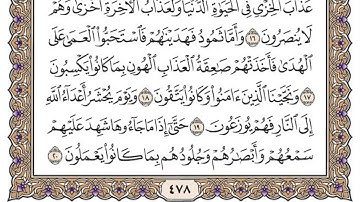 عَذَابَ ٱلْخِزْىِ فِى ٱلْحَيَوٰةِ ٱلدُّنْيَا وَلَعَذَابُ ٱلْءَاخِرَةِ أَخْزَىٰ وَهُمْ
لَا يُنصَرُونَ ١٦ وَأَمَّا ثَمُودُ فَهَدَيْنَٰهُمْ فَٱسْتَحَبُّوا۟ ٱلْعَمَىٰ عَلَى
ٱلْهُدَىٰ فَأَخَذَتْهُمْ صَٰعِقَةُ ٱلْعَذَابِ ٱلْهُونِ بِمَا كَانُوا۟ يَكْسِبُونَ
١٧ وَنَجَّيْنَا ٱلَّذِينَ ءَامَنُوا۟ وَكَانُوا۟ يَتَّقُونَ ١٨ وَيَوْمَ يُحْشَرُ أَعْدَآءُ ٱللَّهِ
إِلَى ٱلنَّارِ فَهُمْ يُوزَعُونَ ١٩ حَتَّىٰٓ إِذَا مَا جَآءُوهَا شَهِدَ عَلَيْهِمْ
سَمْعُهُمْ وَأَبْصَٰرُهُمْ وَجُلُودُهُم بِمَا كَانُوا۟ يَعْمَلُونَ ٢٠
٤٧٨